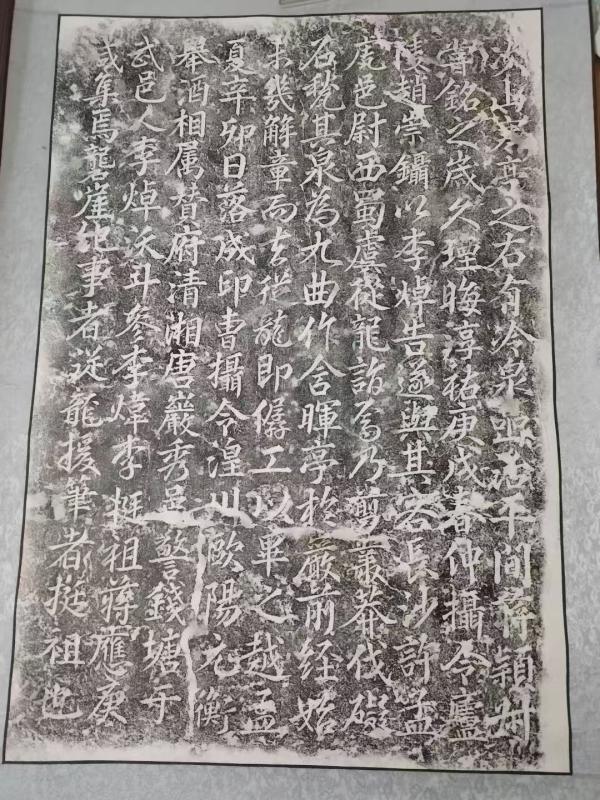 次山寒亭之右有冷泉治平間蔣穎叔
嘗銘之歲久堙晦淳祐庚戌春仲攝令廬
陵趙崇鑷以李焯告遂與其客長沙許孟
邑尉西蜀虞從龍詣焉乃剪叢莽伐礙
石甃其泉為九曲作含暉亭於巖前經始
未幾解章而去從龍即僝工以畢之越孟
夏辛卯日落成印曹攝令湟川歐陽元衡
舉酒相属督府清湘唐巖秀邑警錢塘于
武邑人李焯沃斗參李煒李挺祖蔣應庚
咸集焉礱崖紀事者從龍援筆者挺祖也